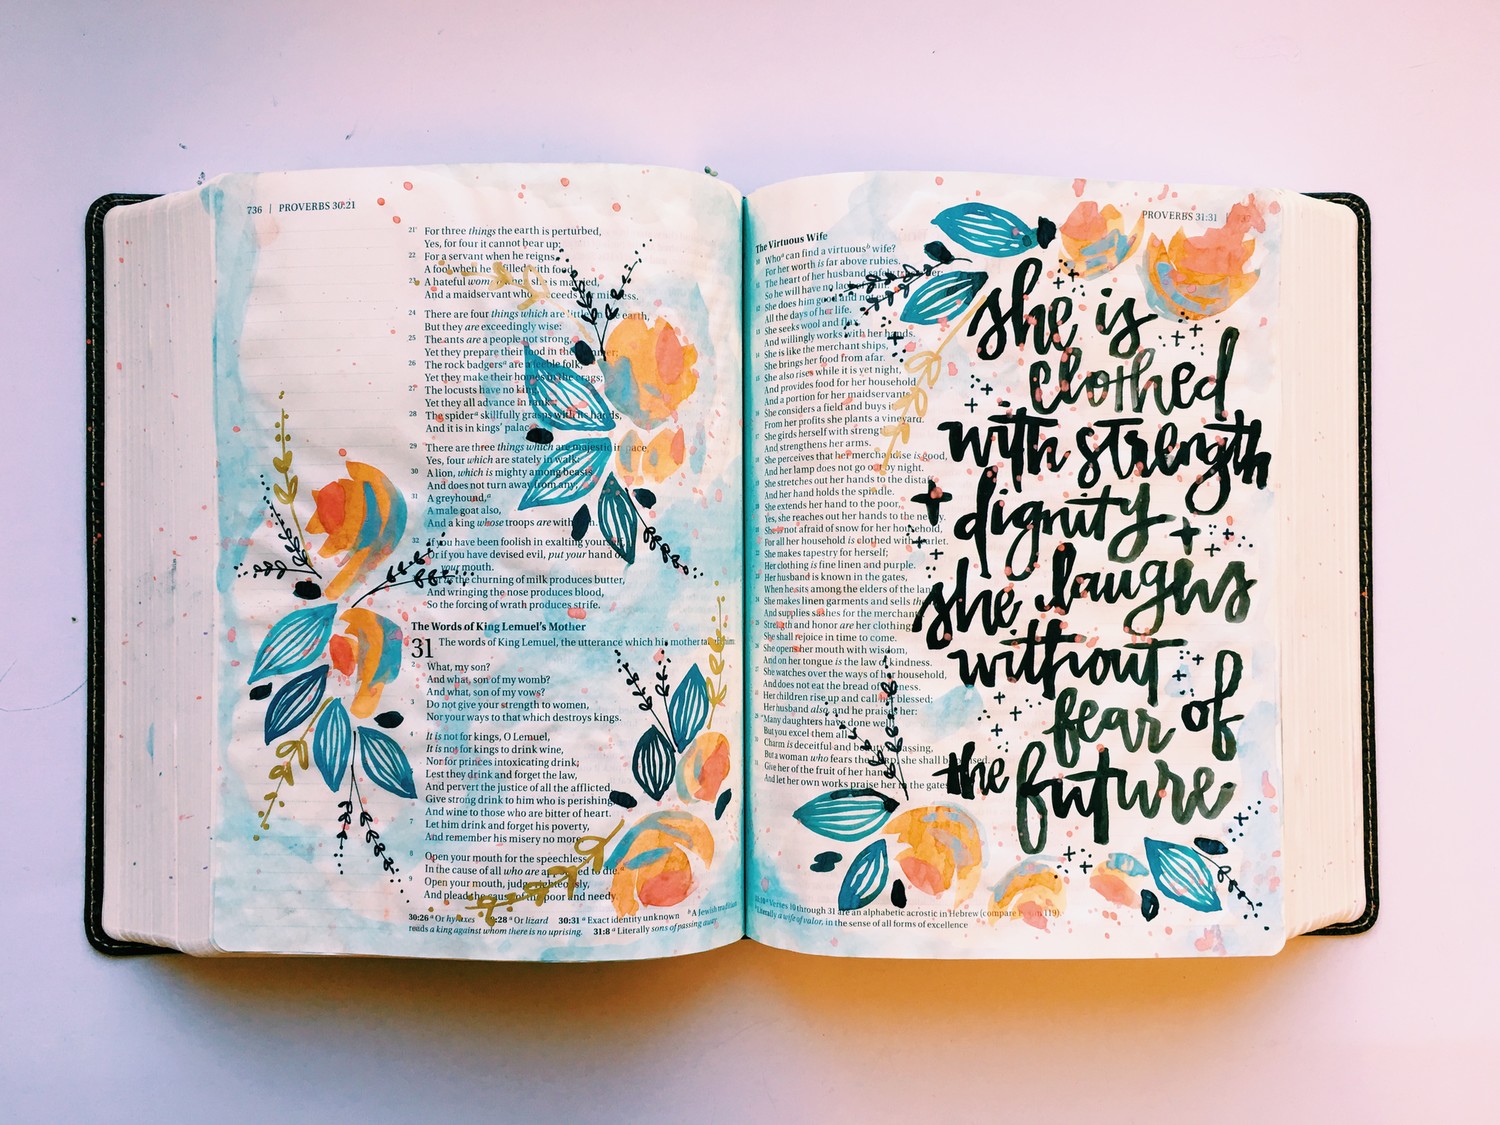 736 | PROVERBS 30:21
21 For three things the earth is perturbed,
Yes, for four it cannot bear up:
22 For a servant when he reigns,
A fool when he is filled with food,
23 A hateful woman when she is married,
And a maidservant who succeeds her mistress.
24 There are four things which are little on the earth,
But they are exceedingly wise:
25 The ants are a people not strong,
Yet they prepare their food in the summer;
26 The rock badgersª are a feeble folk,
Yet they make their homes in the crags;
27 The locusts have no king,
Yet they all advance in ranks;
28 The spiderª skillfully grasps with its hands,
And it is in kings' palaces.
29 There are three things which are majestic in pace,
Yes, four which are stately in walk:
30 A lion, which is mighty among beasts
And does not turn away from any;
31 A greyhound,ª
A male goat also,
And a king whose troops are with him.
32 If you have been foolish in exalting yourself,
Or if you have devised evil, put your hand on
your mouth.
the churning of milk produces butter,
And wringing the nose produces blood,
So the forcing of wrath produces strife.
The Words of King Lemuel's Mother
31 The words of King Lemuel, the utterance which his mother taught him:
2 What, my son?
And what, son of my womb?
And what, son of my vows?
3 Do not give your strength to women,
Nor your ways to that which destroys kings.
4 It is not for kings, O Lemuel,
It is not for kings to drink wine,
Nor for princes intoxicating drink;
Lest they drink and forget the law,
And pervert the justice of all the afflicted.
Give strong drink to him who is perishing,
And wine to those who are bitter of heart.
7 Let him drink and forget his poverty,
And remember his misery no more.
8 Open your mouth for the speechless,
In the cause of all who are appointed to die.
9 Open your mouth, judge righteously,
And plead the cause of the poor and needy.
30:26 ª Or hyraxes 30:28 ª Or lizard 30:31 ª Exact identity unknown ᵇ A Jewish tradition
reads a king against whom there is no uprising. 31:8 ª Literally sons of passing away
PROVERBS 31:31 |
The Virtuous Wife
10 Whoª can find a virtuousᵇ wife?
For her worth is far above rubies.
11 The heart of her husband safely trusts her;
So he will have no lack of gain.
12 She does him good and not evil
All the days of her life.
13 She seeks wool and flax,
And willingly works with her hands.
14 She is like the merchant ships,
She brings her food from afar.
15 She also rises while it is yet night,
And provides food for her household,
And a portion for her maidservants.
16 She considers a field and buys it;
From her profits she plants a vineyard.
17 She girds herself with strength,
And strengthens her arms.
18 She perceives that her merchandise is good,
And her lamp does not go out by night.
19 She stretches out her hands to the distaff,
And her hand holds the spindle.
20 She extends her hand to the poor,
Yes, she reaches out her hands to the needy.
21 She is not afraid of snow for her household,
For all her household is clothed with scarlet.
22 She makes tapestry for herself;
Her clothing is fine linen and purple.
23 Her husband is known in the gates,
When he sits among the elders of the land.
24 She makes linen garments and sells them,
And supplies sashes for the merchants.
25 Strength and honor are her clothing;
She shall rejoice in time to come.
26 She opens her mouth with wisdom,
And on her tongue is the law of kindness.
27 She watches over the ways of her household,
And does not eat the bread of idleness.
28 Her children rise up and call her blessed;
Her husband also, and he praises her:
29 "Many daughters have done well,
But you excel them all."
30 Charm is deceitful and beauty is passing,
But a woman who fears the LORD, she shall be praised.
31 Give her of the fruit of her hands,
And let her own works praise her in the gates.
31:10 ª Verses 10 through 31 are an alphabetic acrostic in Hebrew (compare Psalm 119).
ᵇ Literally a wife of valor, in the sense of all forms of excellence
She is
clothed
with strength
+ dignity +
she laughs
without
fear of
the future